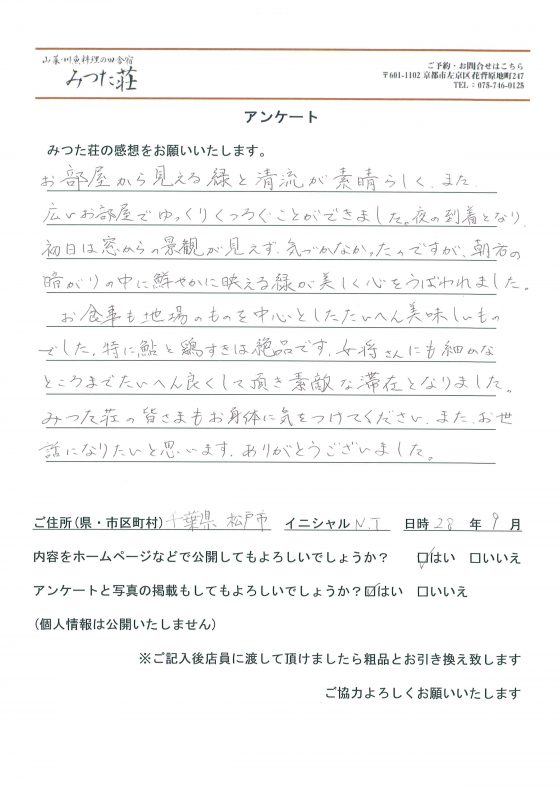 山菜・川魚料理の田舎宿
みつた荘
ご予約・お問合せはこちら
〒601-1102 京都市左京区花背原地町247
TEL：075-746-0125
アンケート
みつた荘の感想をお願いいたします。
お部屋から見える緑と清流が素晴らしく、また、
広いお部屋でゆっくりくつろぐことができました。夜の到着となり、
初日は窓からの景観が見えず、気づかなかったのですが、朝方の
暗がりの中に鮮やかに映える緑が美しく心をうばわれました。
お食事も地場のものを中心としたたいへん美味しいもの
でした。特に鮎と鶏すきは絶品です。女将さんにも細かな
ところまでたいへん良くして頂き素敵な滞在となりました。
みつた荘の皆さまもお身体に気をつけてください。また、お世
話になりたいと思います。ありがとうございました。
ご住所(県・市区町村) 千葉県 松戸市 イニシャル N.T 日時 28 年 9 月
内容をホームページなどで公開してもよろしいでしょうか？ ☑はい □いいえ
アンケートと写真の掲載もしてもよろしいでしょうか？☑はい □いいえ
(個人情報は公開いたしません)
※ご記入後店員に渡して頂けましたら粗品とお引き換え致します
ご協力よろしくお願いいたします